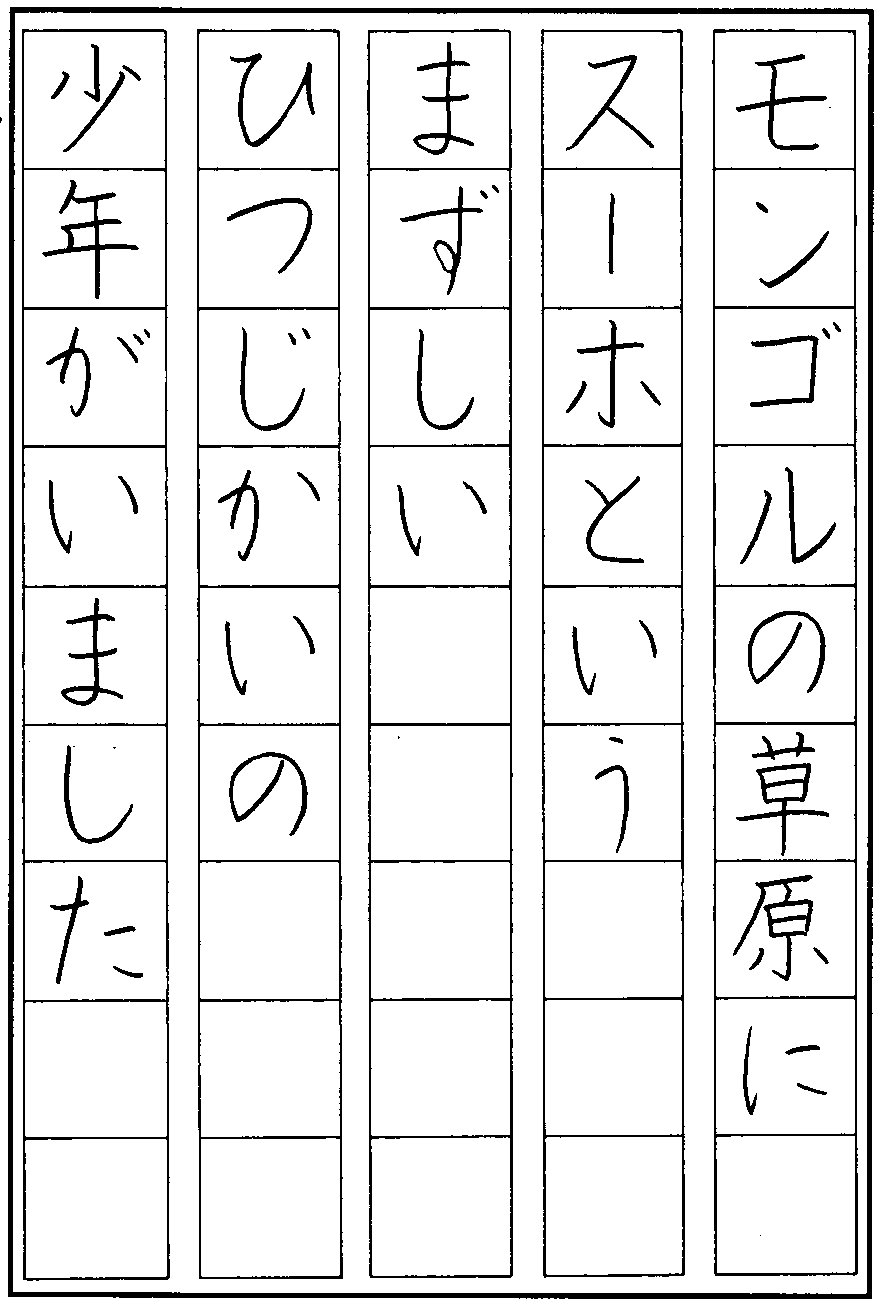 モンゴルの草原に
スーホという
まずしい
ひつじかいの
少年がいました